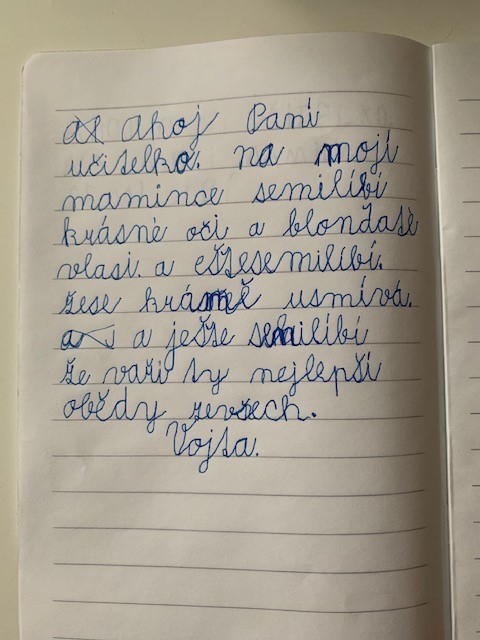 Ahoj Paní
učitelko. na mojí
mamince semilíbí
krásné oči a blonďaté
vlasi. a eštesemilíbí.
žese krásně usmívá.
a ješte semilíbí
že vaři ty nejlepší
obědy zevšech.
Vojta.